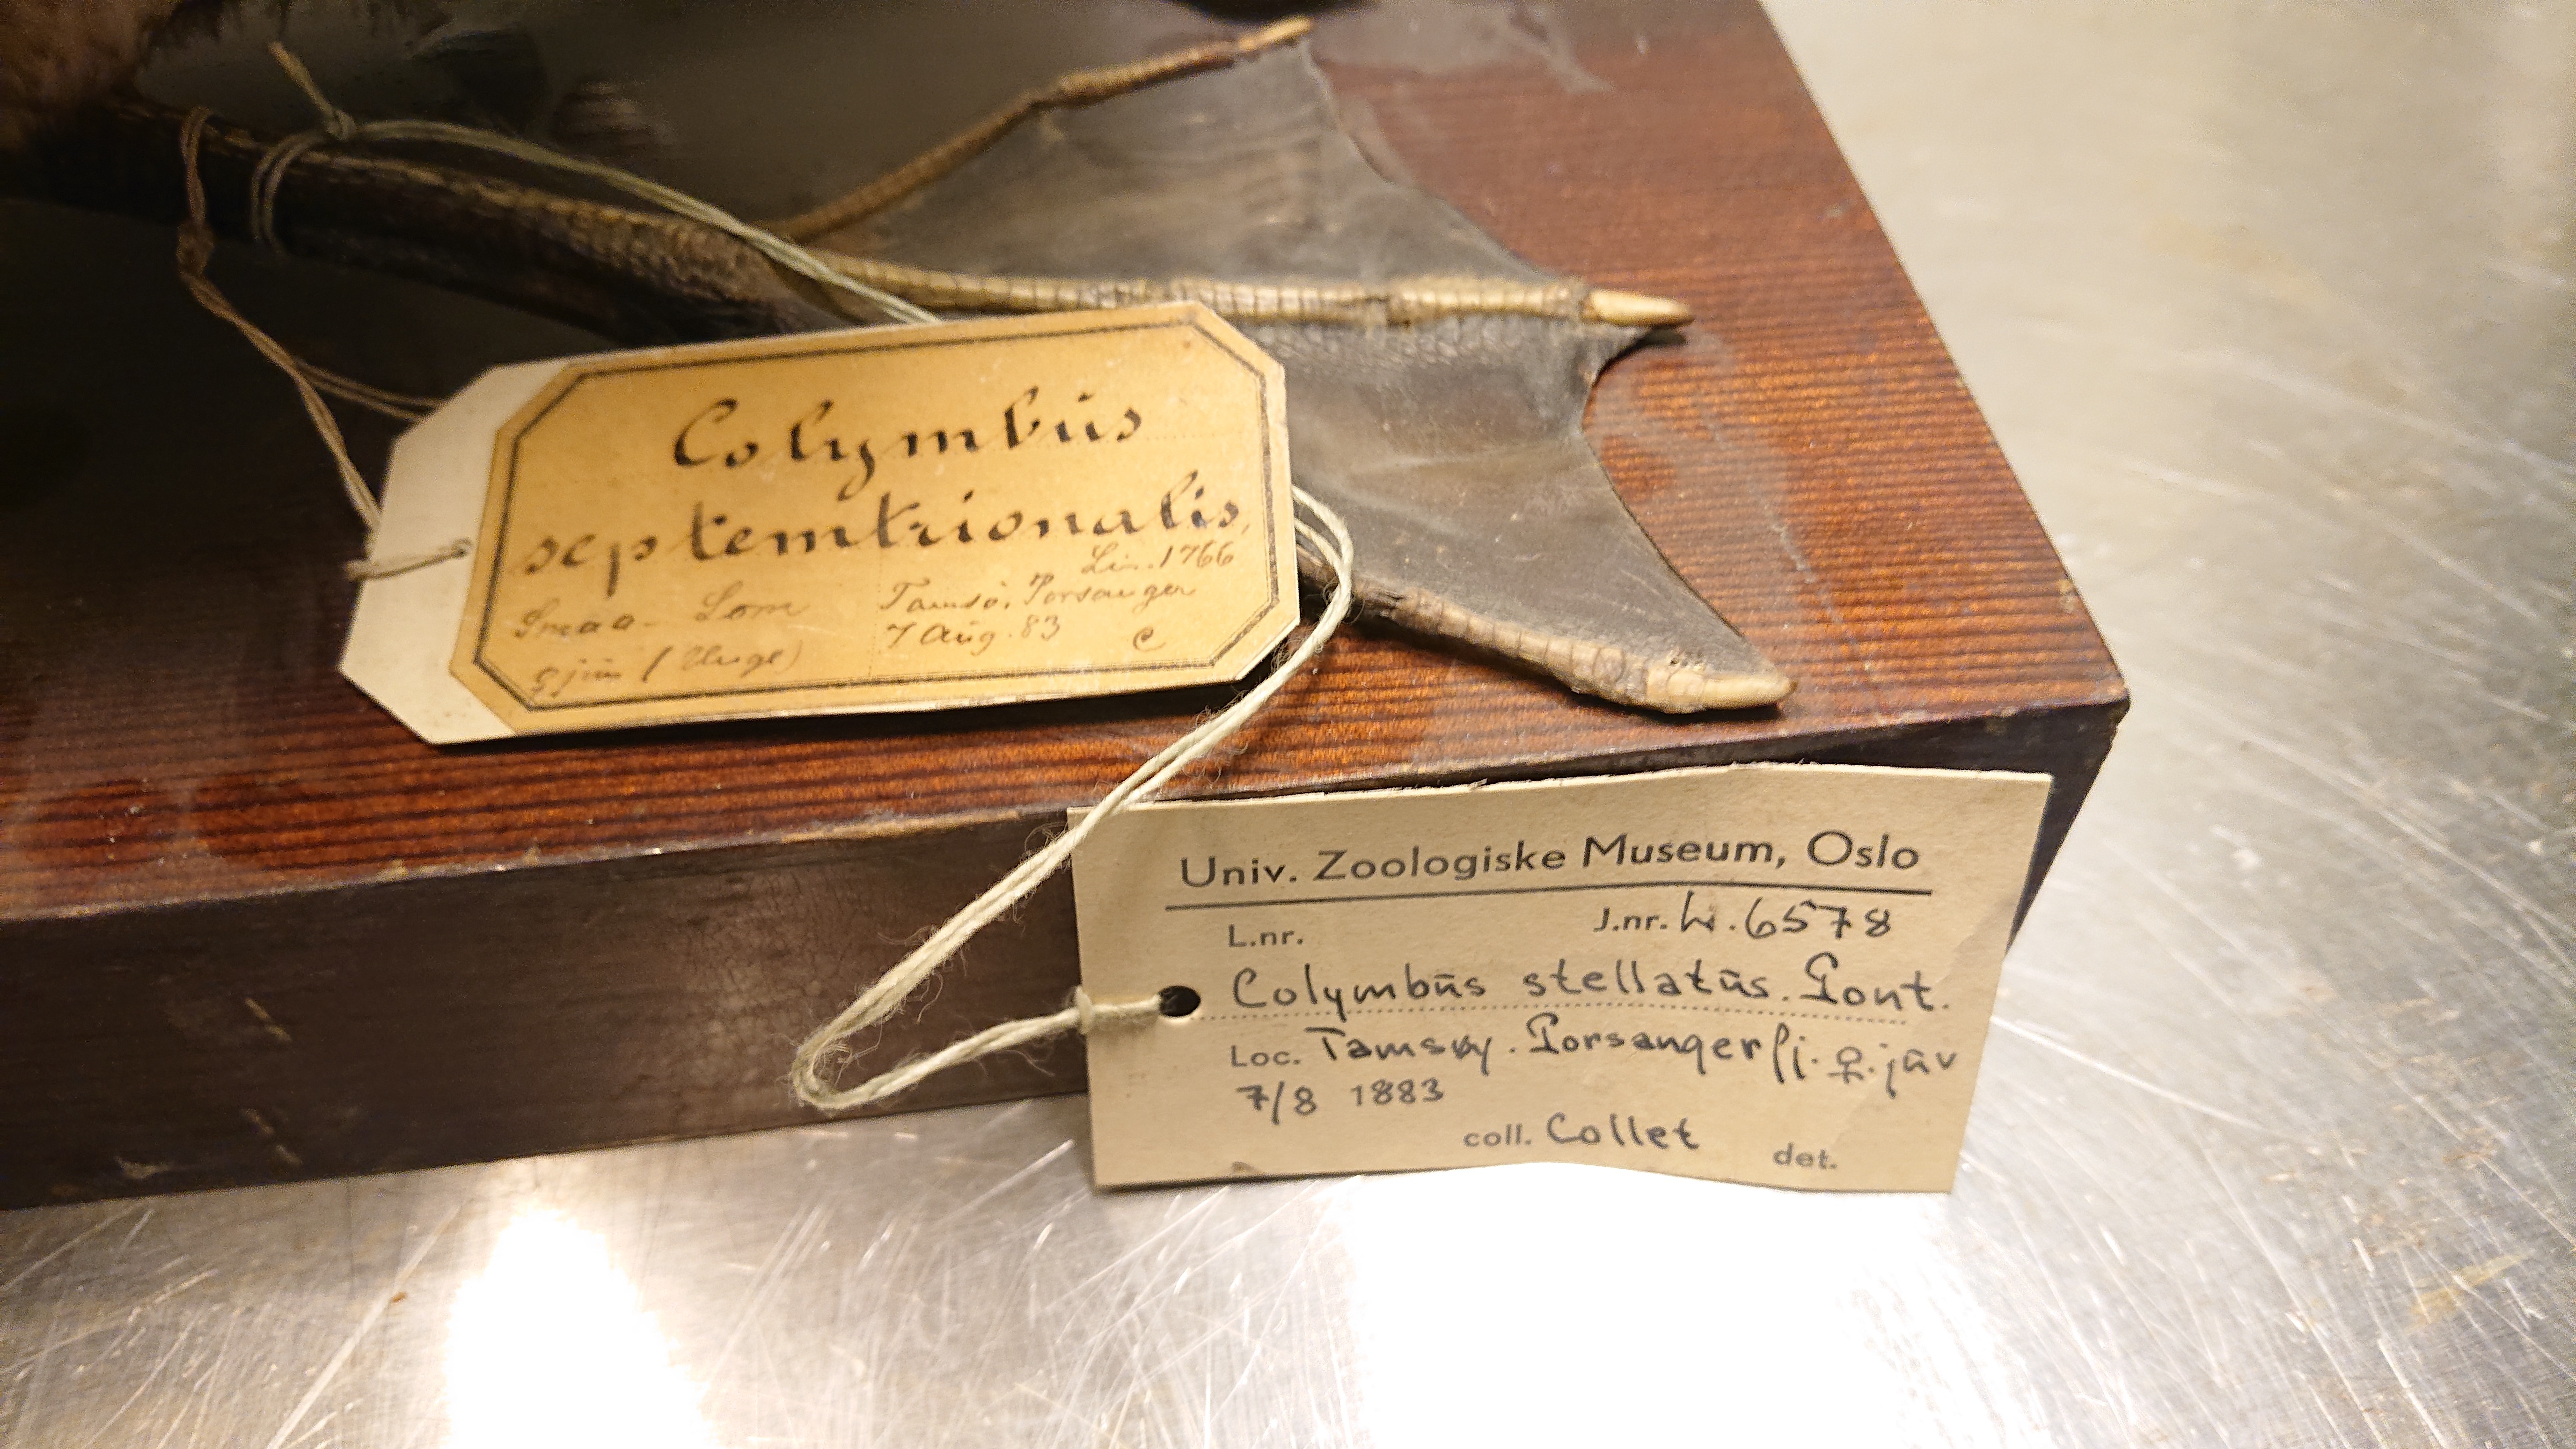 Colymbus
septemtrionalis,
Lin. 1766
Smaa-Lom
Tamsö, Porsanger
♀ jun (Unge)
7 Aug. 83
C
Univ. Zoologiske Museum, Oslo
L.nr. J.nr. 6578
Colymbūs stellatūs. Pont.
Loc. Tamsøy. Porsangerfj. ♀. jūv
7/8 1883
coll. Collet det.